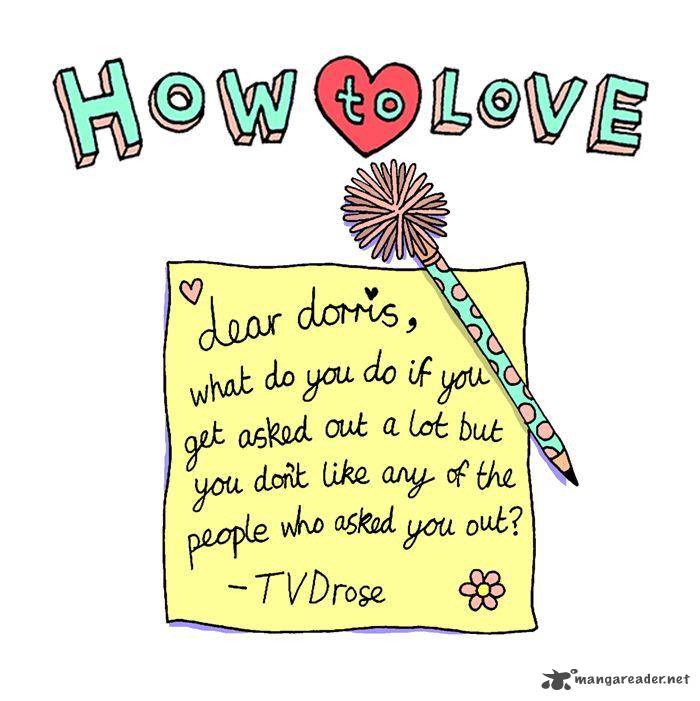 HOW to LOVE
dear dorris,
what do you do if you
get asked out a lot but
you don't like any of the
people who asked you out?
- TVDrose
mangareader.net